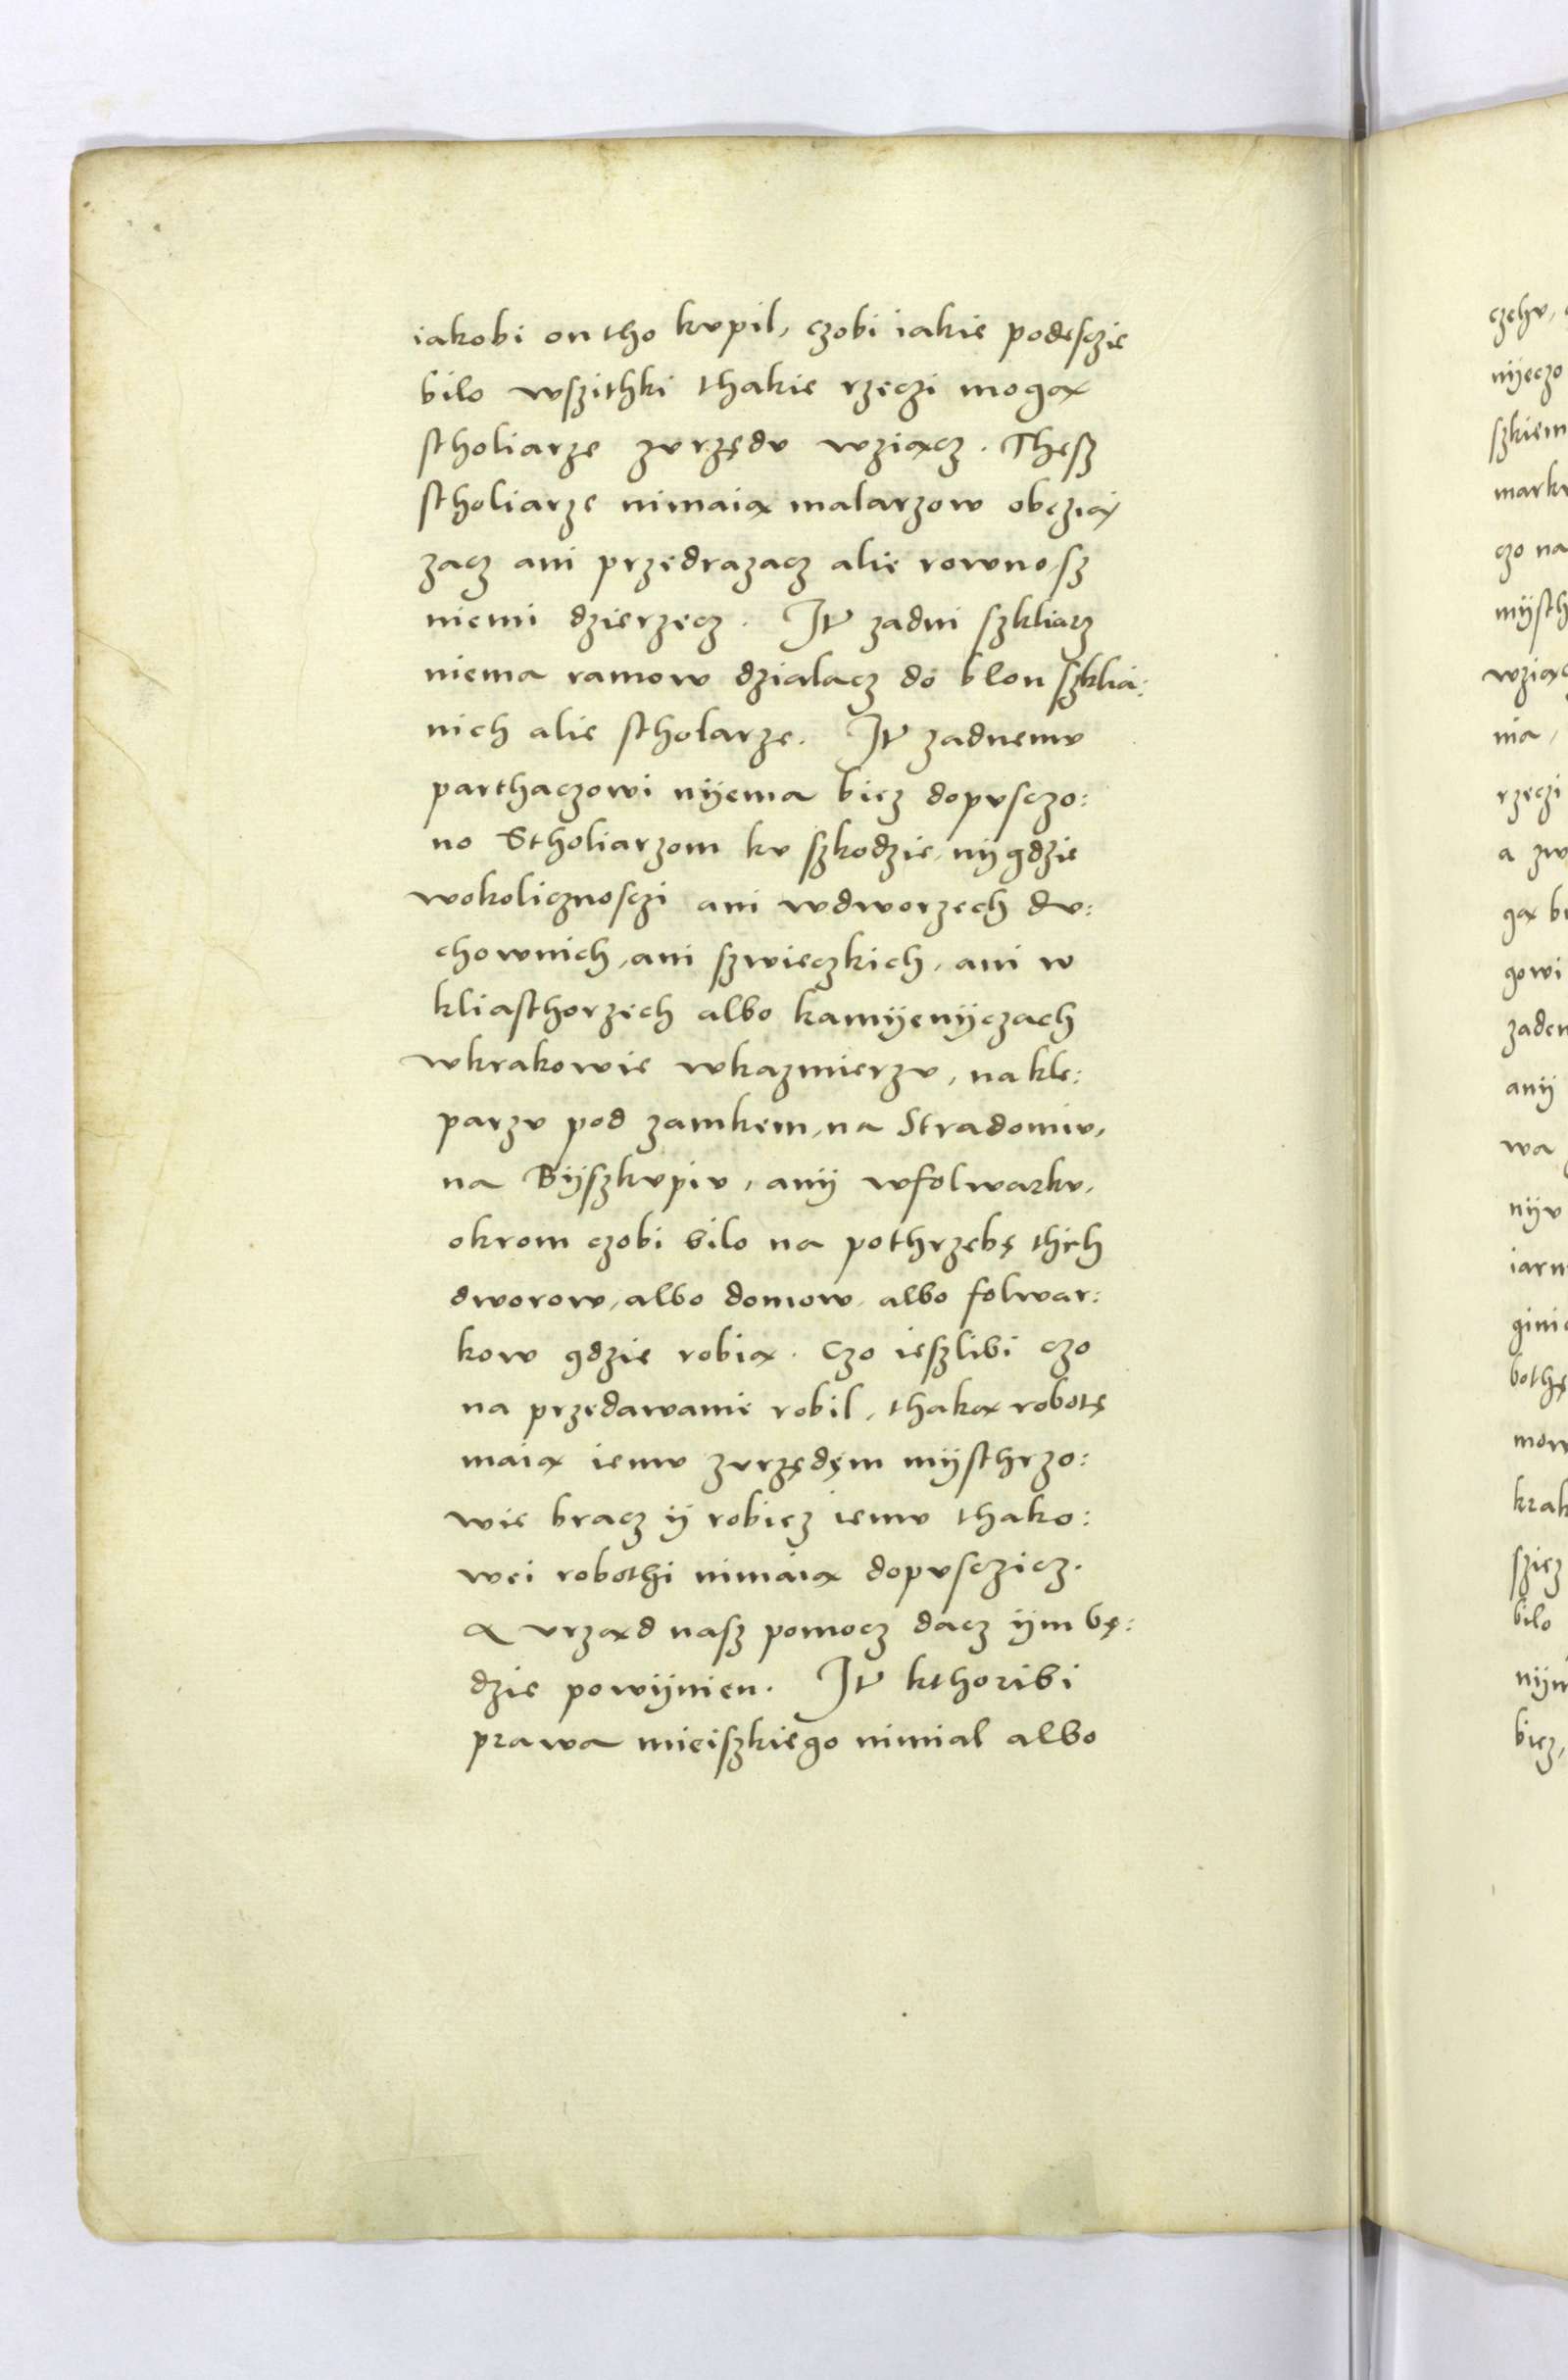 iakobi on tho kvpil, czobi iakie podesczie
bilo wszithki thakie rzeczi mogą
stholiarze zvrzędv wziącz. Thesz
stholiarze nimaią malarzow obczią
zacz ani przedrazacz alie rowno sz
niemi dzierzecz. It zadni szkliarz
niema ramow dzialacz do blon szklia:
nich alie stholarze. It zadnemv
parthaczowi nÿema bicz dopvsczo:
no Stholiarzom kv szkodzie, nÿgdzie
wokolicznosczi ani wdworzech dv:
chownich, ani szwieczkich, ani w
kliasthorzech albo kamÿenÿczach
wkrakowie wkazmierzv, na kle:
parzv pod zamkem, na Stradomiv,
na Bÿszkvpiv, anÿ wfolwarkv,
okrom czobi bilo na pothrzebę thich
dworow, albo domow, albo folwar:
kow gdzie robią. Czo ieszlibi czo
na przedawanie robil, thaką robotę
maią iemv zvrzędęm mÿsthrzo:
wie bracz ÿ robicz iemv thako:
wei robothi nimaią dopvsczicz.
A vrząd nasz pomocz dacz ÿm bę:
dzie powÿnien. It kthoribi
prawa mieiszkiego nimial albo
czehv,
nÿeczo
szkiem
czo na
mÿsth
nia,
rzeczi
a zw
gą b
gowi
zaden
anÿ
wa
nÿv
iarm
bothę
mow
krak
szicz
bilo
nÿm
bicz,